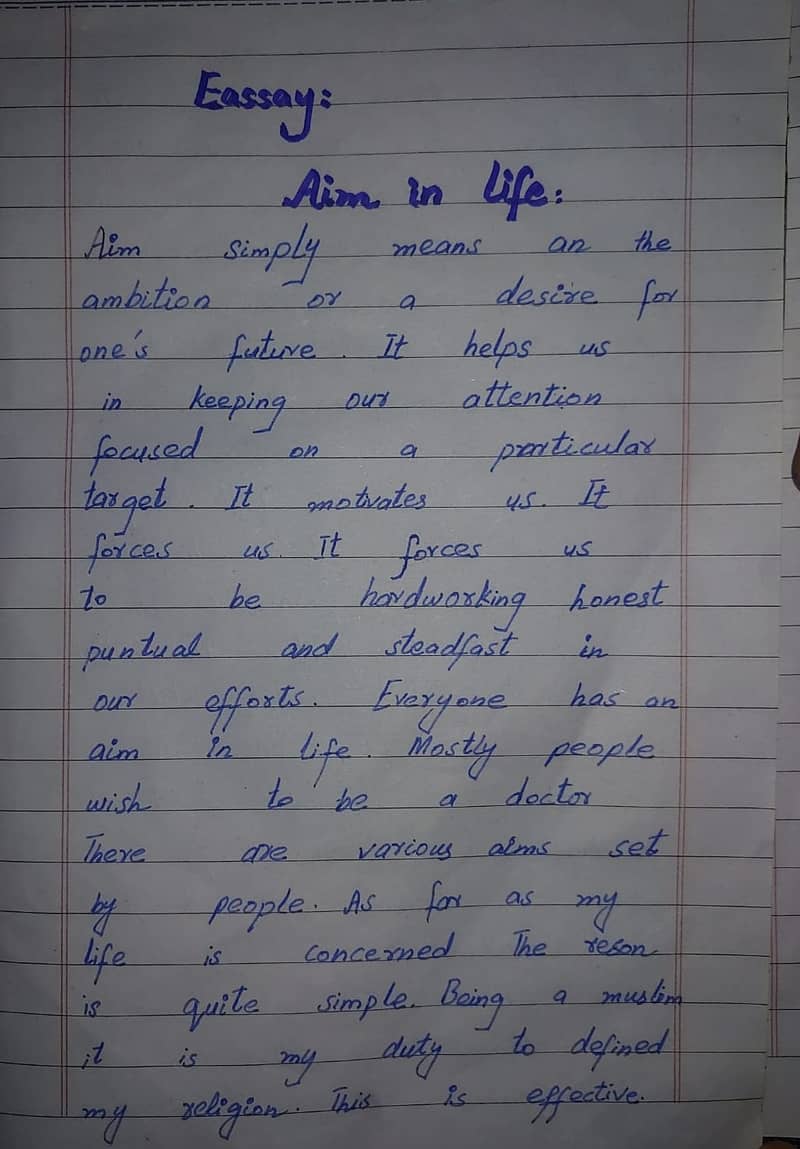 Eassay:
Aim in life:
Aim simply means an the
ambition or a desire for
one's future. It helps us
in keeping our attention
focused on a particular
target. It motvates us. It
forces us. It forces us
to be hardworking honest
puntual and steadfast in
our efforts. Everyone has an
aim in life. Mostly people
wish to be a doctor
There are various aims set
by people. As for as my
life is concerned The reson
is quite simple. Being a muslim
it is my duty to defined
my religion. This is effective.